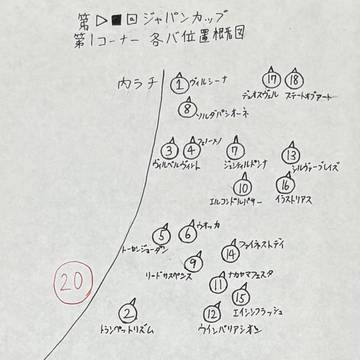 第▷■回ジャパンカップ
第1コーナー 各バ位置概図
内ラチ
1 ヴィルシーナ
17 18
ジュエルスヴェル ステートオブアート
8
ソルダパシオーネ
フェノーメノ
3 4 7 13
ヴィルベルヴィント ジェンティルドンナ シルヴァーブレイズ
10 16
エルコンドルパサー イラストリアス
ウオッカ
5 6
ファイネストデイ
トーセンジョーダン 14
9
リードサスペンス ナカヤマフェスタ
11
20 15
2 12 エイシンフラッシュ
トランペットリズム ウインバリアシオン